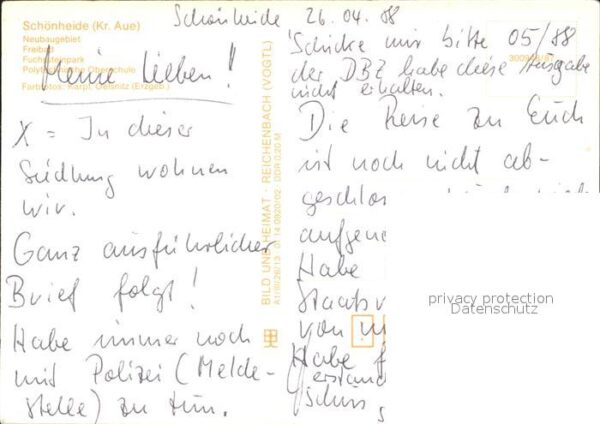 Schönheide 26.04.88
Schönheide (Kr. Aue)
Neubaugebiet
Freibad
Fuchssteinpark
Polytechnische Oberschule
Farbfotos: Karpf, Oelsnitz (Erzgeb.)
Meine Lieben!
X = In dieser
Siedlung wohnen
wir.
Ganz ausführlicher
Brief folgt!
Habe immer noch
mit Polizei (Melde-
stelle) zu tun.
BILD UND HEIMAT · REICHENBACH (VOGTL)
Schicke mir bitte 05/88
der DBZ habe diese Ausgabe
nicht erhalten.
Die Reise zu Euch
ist noch nicht ab-
geschlos
aufgene
Habe
Staats
von
Habe
erstand
schuss
privacy protection
Datenschutz